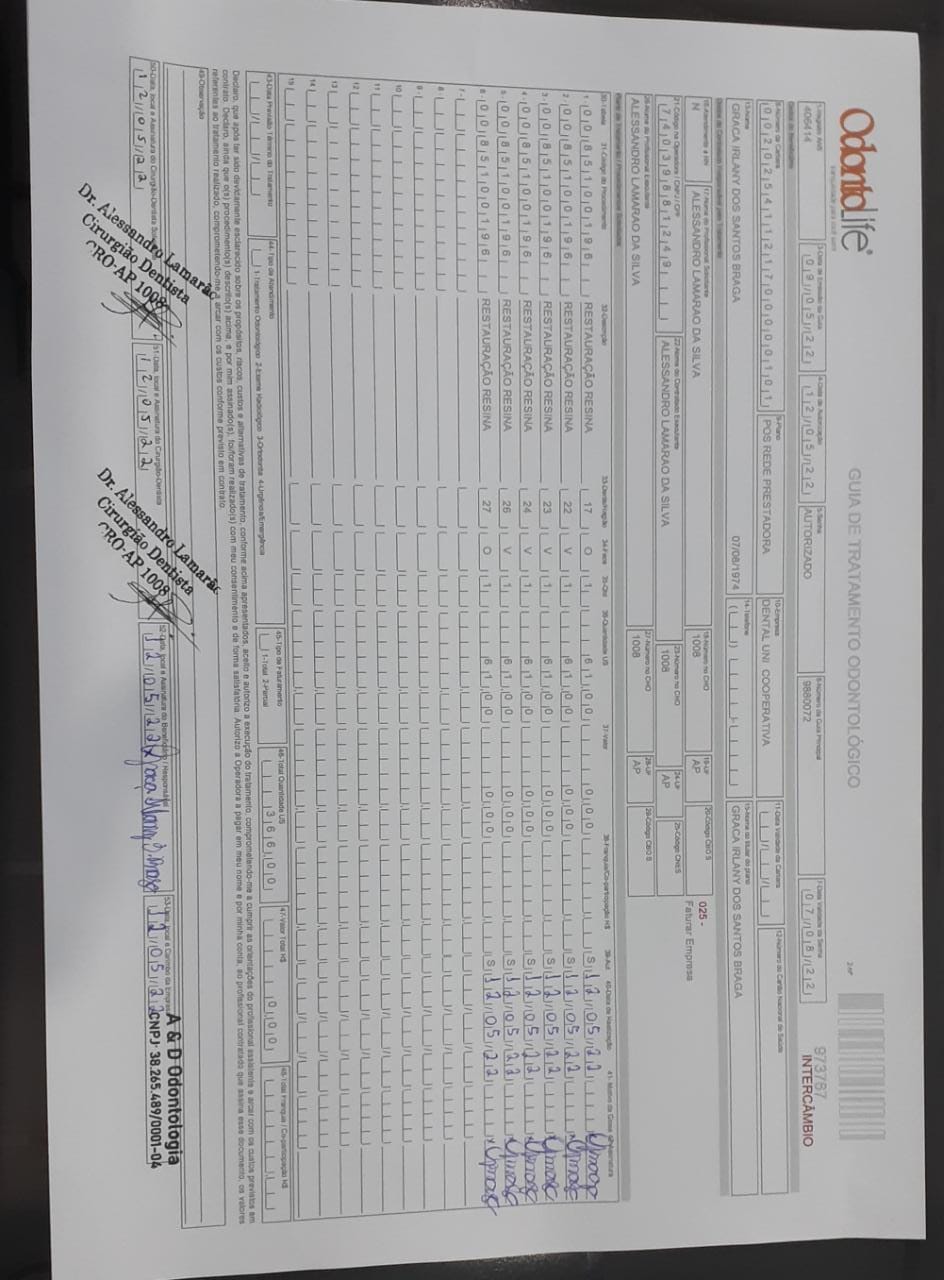 OdontoLife®
GUIA DE TRATAMENTO ODONTOLÓGICO
2-Nº
973787
INTERCÂMBIO
1-Registro ANS
406414
3-Data de Emissão da Guia
09/05/22
4-Data de Autorização
12/05/22
5-Senha
AUTORIZADO
6-Número da Guia Principal
9880072
7-Data Validade da Senha
07/08/22
8-Número da Carteira
9-Plano
POS REDE PRESTADORA
10-Empresa
DENTAL UNI COOPERATIVA
11-Data Validade da Carteira
12-Número do Cartão Nacional de Saúde
13-Nome
GRACA IRLANY DOS SANTOS BRAGA
07/08/1974
14-Telefone
15-Nome do titular do plano
GRACA IRLANY DOS SANTOS BRAGA
16-Atendimento a RN
N
17-Nome do Profissional Solicitante
ALESSANDRO LAMARAO DA SILVA
18-Número no CRO
1008
19-UF
AP
20-Código CBO S
025 -
Faturar Empresa
21-Código na Operadora / CNPJ / CPF
74039881249
22-Nome do Contratado Executante
ALESSANDRO LAMARAO DA SILVA
23-Número no CRO
1008
24-UF
AP
25-Código CNES
26-Nome do Profissional Executante
ALESSANDRO LAMARAO DA SILVA
27-Número no CRO
1008
28-UF
AP
29-Código CBO S
30-Tabela 31-Código do Procedimento 32-Descrição 33-Dente/Região 34-Face 35-Qtd 36-Quantidade US 37-Valor 38-Franquia/Co-participação R$ 39-Aut 40-Data de Realização
1- 00 85100196 RESTAURAÇÃO RESINA 17 O 1 61,00 0,00 S 12/05/22
2- 00 85100196 RESTAURAÇÃO RESINA 22 V 1 61,00 0,00 S 12/05/22
3- 00 85100196 RESTAURAÇÃO RESINA 23 V 1 61,00 0,00 S 12/05/22
4- 00 85100196 RESTAURAÇÃO RESINA 24 V 1 61,00 0,00 S 12/05/22
5- 00 85100196 RESTAURAÇÃO RESINA 26 V 1 61,00 0,00 S 12/05/22
6- 00 85100196 RESTAURAÇÃO RESINA 27 O 1 61,00 0,00 S 12/05/22
7-
8-
9-
10
11
12
13
14
15
43-Data Prevista Término do Tratamento
44-Tipo de Atendimento
1-Tratamento Odontológico 2-Exame Radiológico 3-Ortodontia 4-Urgência/Emergência
45-Tipo de Faturamento
1-Total 2-Parcial
46-Total Quantidade US
366,00
47-Valor Total R$
0,00
48-Total Franquia / Co-participação R$
Declaro, que após ter sido devidamente esclarecido sobre os propósitos, riscos, custos e alternativas de tratamento, conforme acima apresentados, aceito e autorizo a execução do tratamento, comprometendo-me a cumprir as orientações do profissional assistente e arcar com os custos previstos em
contrato. Declaro, ainda que o(s) procedimento(s) descrito(s) acima, e por mim assinado(s), foi/foram realizado(s) com meu consentimento e de forma satisfatória. Autorizo a Operadora a pagar em meu nome e por minha conta, ao profissional contratado que assina esse documento, os valores
referentes ao tratamento realizado, comprometendo-me a arcar com os custos conforme previsto em contrato.
49-Observação
50-Data, local e Assinatura do Cirurgião-Dentista
12/05/22
51-Data, local e Assinatura do Cirurgião-Dentista
12/05/22
52-Data, local e Assinatura do Beneficiário / Responsável
12/05/22
53-Data, local e Carimbo da Empresa
12/05/22
Dr. Alessandro Lamarão
Cirurgião Dentista
CRO-AP 1008
Dr. Alessandro Lamarão
Cirurgião Dentista
CRO-AP 1008
A & D Odontologia
CNPJ- 38.265.489/0001-04